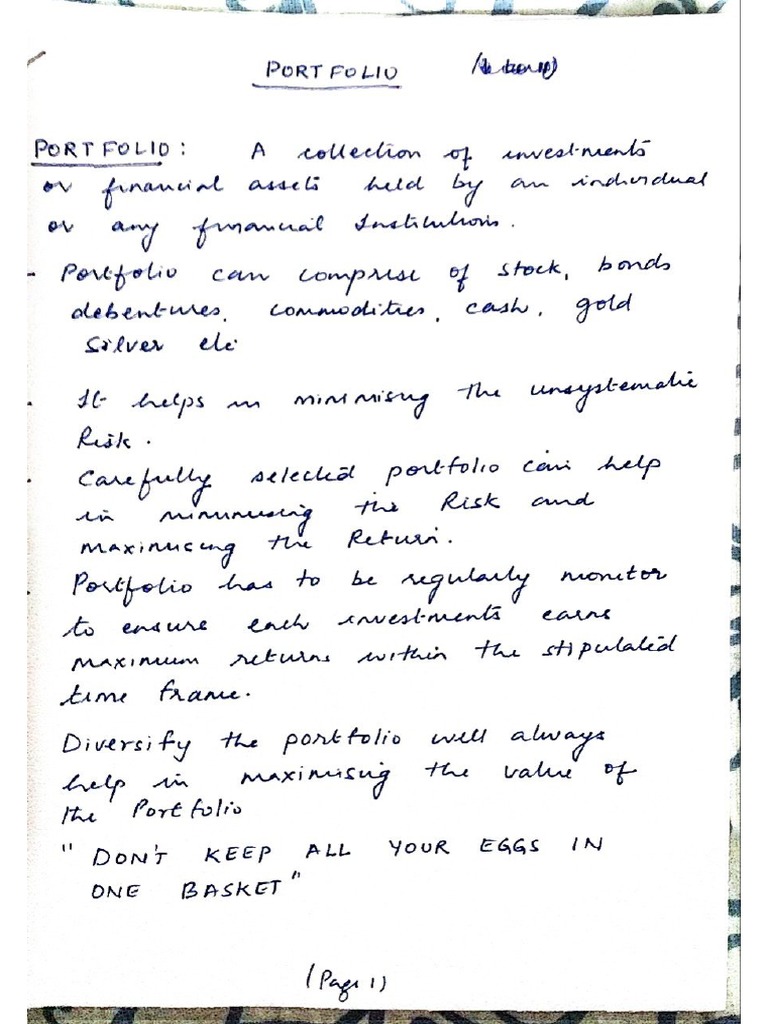 PORTFOLIO
PORTFOLIO: A collection of investments
or financial assets held by an individual
or any financial Institutions.
- Portfolio can comprise of stock, bonds
debentures, commodities, cash, gold
Silver etc
- It helps in minimising the unsystematic
Risk.
- Carefully selected portfolio can help
in minimising the Risk and
maximising the Return.
Portfolio has to be regularly monitor
to ensure each investments earns
maximum returns within the stipulated
time frame.
Diversify the portfolio well always
help in maximising the value of
the Portfolio
" DON'T KEEP ALL YOUR EGGS IN
ONE BASKET"
(Page 1)